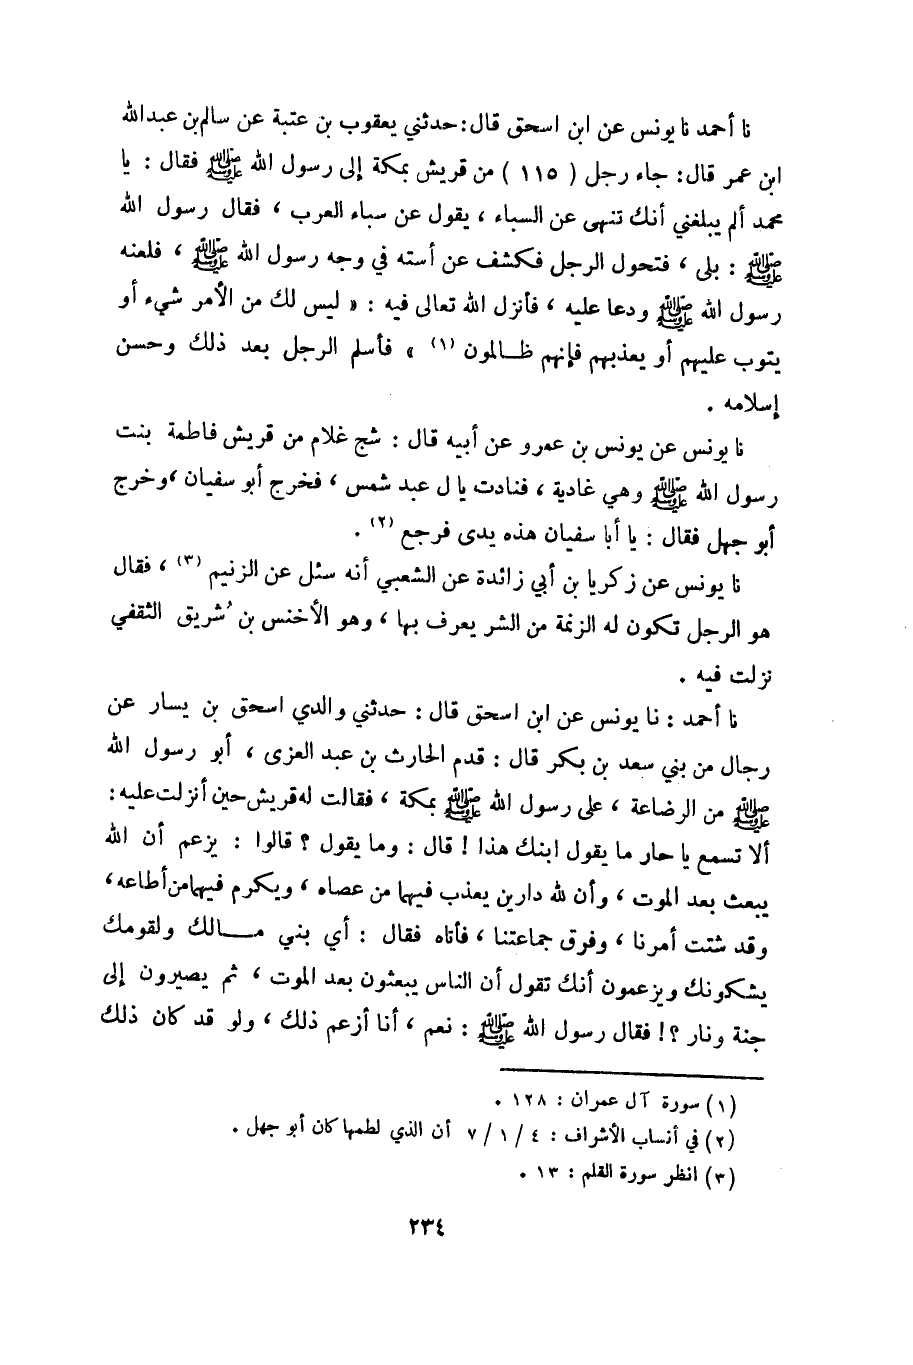 نا أحمد نا يونس عن ابن اسحق قال : حدثني يعقوب بن عتبة عن سالم بن عبدالله
ابن عمر قال : جاء رجل ( ١١٥ ) من قريش بمكة إلى رسول الله ﷺ فقال : يا
محمد ألم يبلغني أنك تنهى عن السباء ، يقول عن سباء العرب ، فقال رسول الله
ﷺ : بلى ، فتحول الرجل فكشف عن أسته في وجه رسول الله ﷺ ، فلعنه
رسول الله ﷺ ودعا عليه ، فأنزل الله تعالى فيه : « ليس لك من الأمر شيء أو
يتوب عليهم أو يعذبهم فإنهم ظـالمون (١) » فأسلم الرجل بعد ذلك وحسن
إسلامه .
نا يونس عن يونس بن عمرو عن أبيه قال : شج غلام من قريش فاطمة بنت
رسول الله ﷺ وهي غادية ، فنادت يا ل عبد شمس ، فخرج أبو سفيان ، وخرج
أبو جهل فقال : يا أبا سفيان هذه يدى فرجع (٢) .
نا يونس عن زكريا بن أبي زائدة عن الشعبي أنه سئل عن الزنيم (٣) ، فقال
هو الرجل تكون له الزنمة من الشر يعرف بها ، وهو الأخنس بن ُشريق الثقفي
نزلت فيه .
نا أحمد : نا يونس عن ابن اسحق قال : حدثني والدي اسحق بن يسار عن
رجال من بني سعد بن بكر قال : قدم الحارث بن عبد العزى ، أبو رسول الله
ﷺ من الرضاعة ، على رسول الله ﷺ بمكة ، فقالت له قريش حين أنزلت عليه :
ألا تسمع يا حار ما يقول ابنك هذا ! قال : وما يقول ؟ قالوا : يزعم أن الله
يبعث بعد الموت ، وأن لله دارين يعذب فيهما من عصاه ، ويكرم فيهما من أطاعه ،
وقد شتت أمرنا ، وفرق جماعتنا ، فأتاه فقال : أي بني مـــالك ولقومك
يشكونك ويزعمون أنك تقول أن الناس يبعثون بعد الموت ، ثم يصيرون إلى
جنة ونار ؟! فقال رسول الله ﷺ : نعم ، أنا أزعم ذلك ، ولو قد كان ذلك
(١) سورة آل عمران : ١٢٨ .
(٢) في أنساب الأشراف : ٤ / ١ / ٧ أن الذي لطمها كان أبو جهل .
(٣) انظر سورة القلم : ١٣ .
٢٣٤